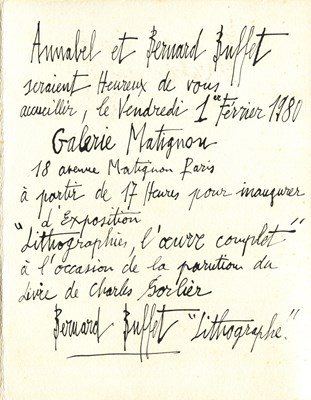 Annabel et Bernard Buffet
seraient Heureux de vous
accueillir, le Vendredi 1er Février 1980
Galerie Matignon
18 avenue Matignon Paris
à partir de 17 Heures pour inaugurer
l'Exposition
"Lithographies, l'œuvre complet"
à l'occasion de la parution du
Livre de Charles Sorlier
Bernard Buffet "Lithographe."